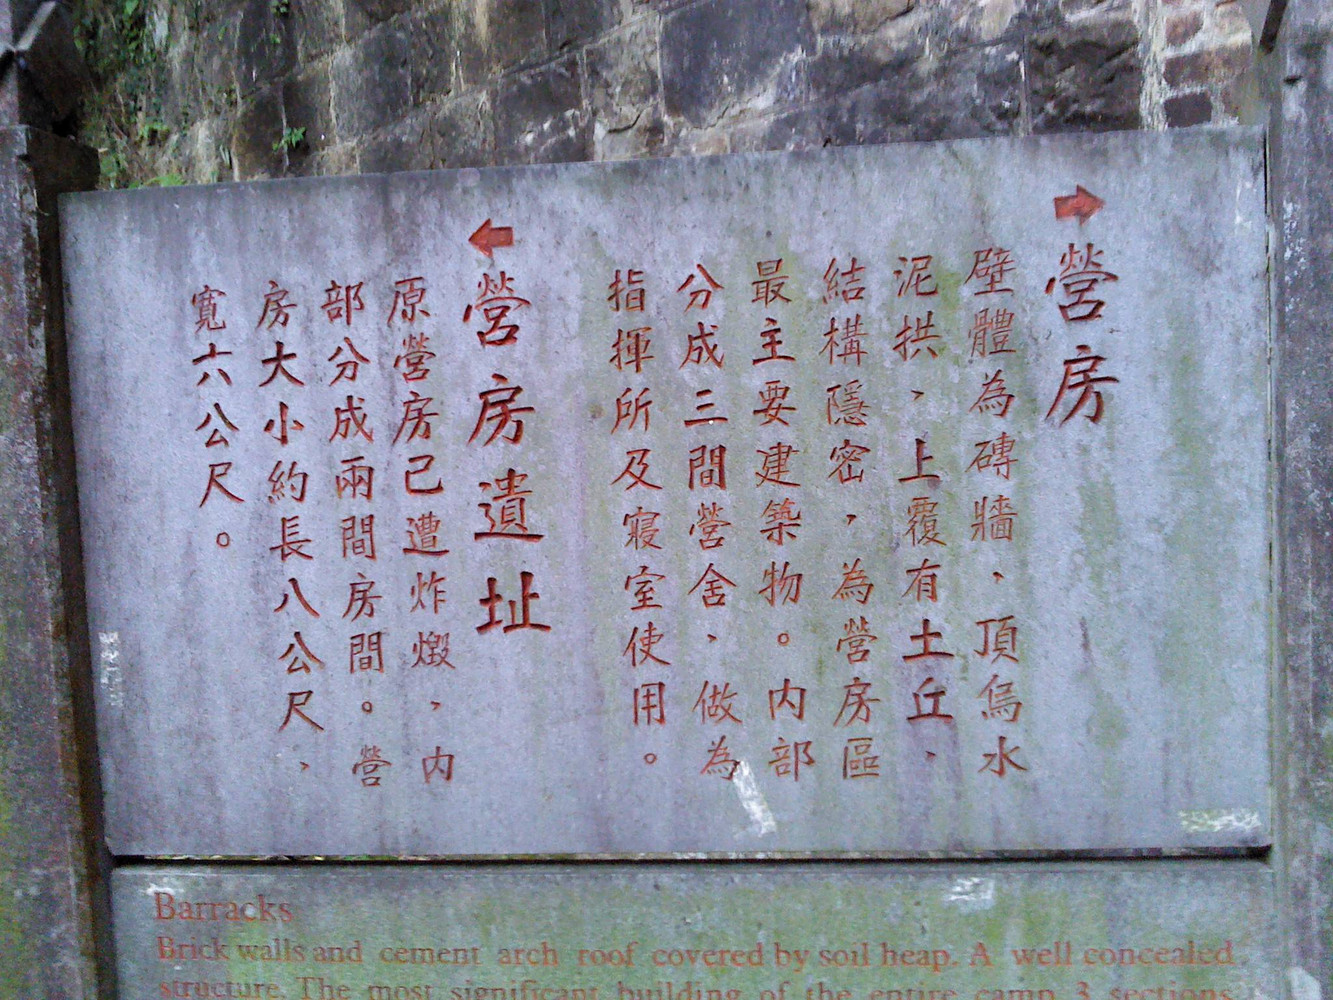 營房
壁體為磚牆、頂為水
泥拱、上覆有土丘、
結構隱密，為營房區
最主要建築物。內部
分成三間營舍、做為
指揮所及寢室使用。
營房遺址
原營房已遭炸燬，內
部分成兩間房間。營
房大小約長八公尺、
寬六公尺。
Barracks
Brick walls and cement arch roof covered by soil heap. A well concealed
structure. The most significant building of the entire camp 3 sections